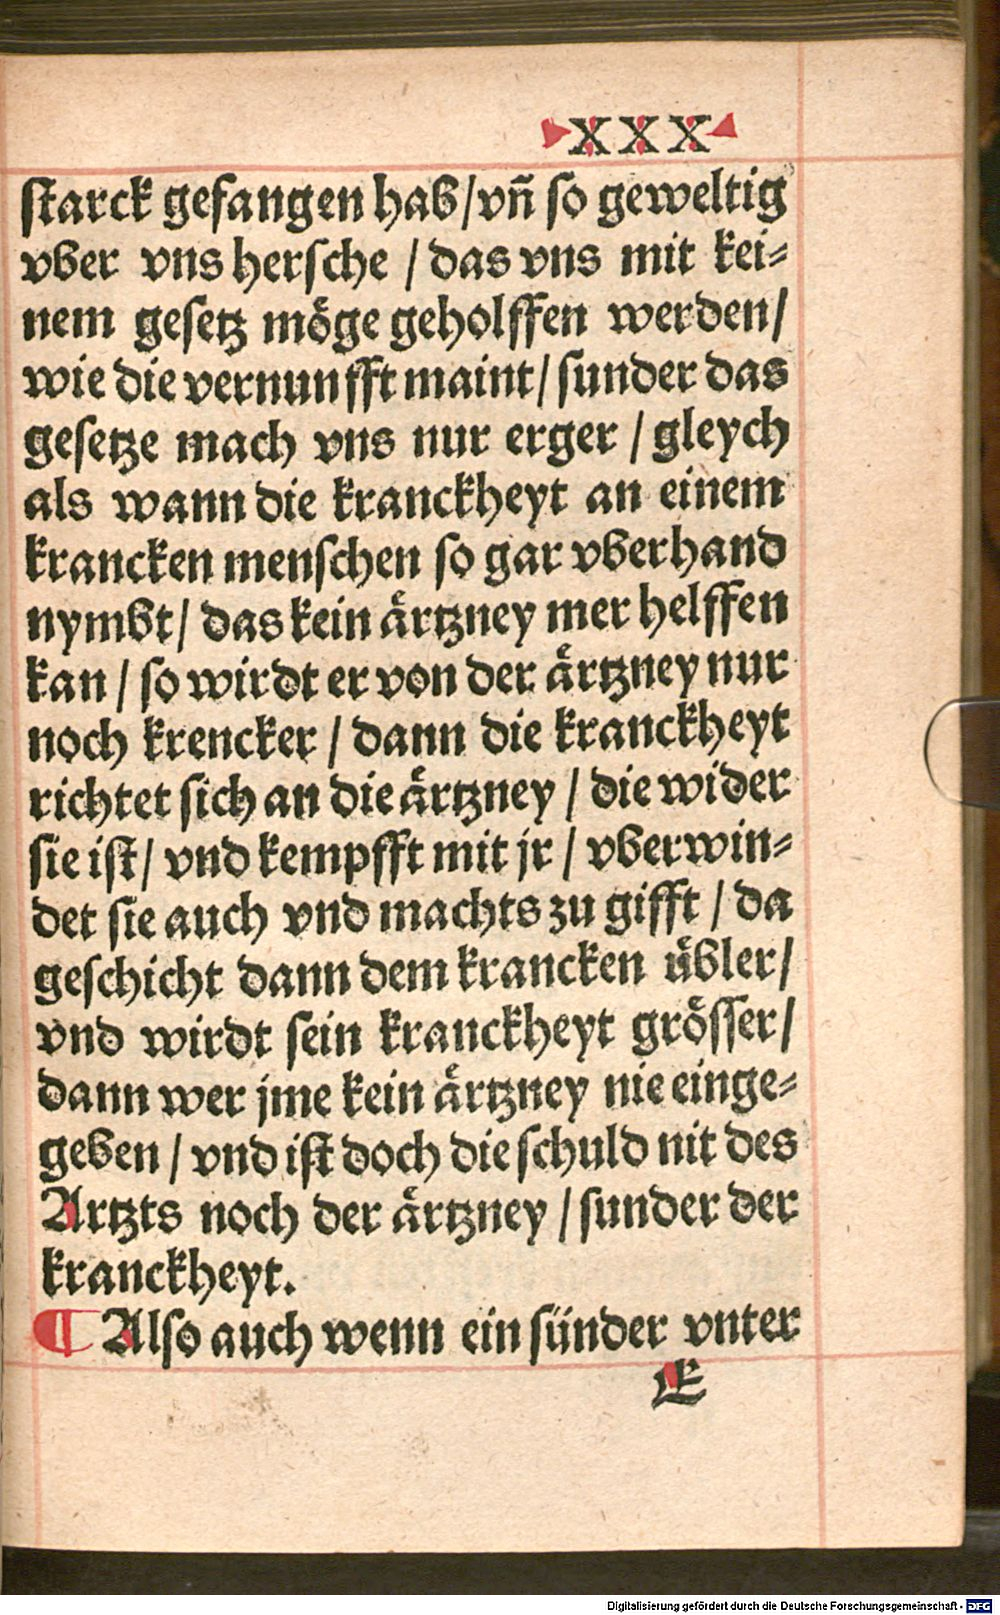 XXX
starck gefangen hab/vñ so geweltig
vber vns hersche / das vns mit kei⸗
nem gesetz möge geholffen werden/
wie die vernunfft maint/ sunder das
gesetze mach vns nur erger / gleych
als wann die kranckheyt an einem
krancken menschen so gar vberhand
nymbt/ das kein ärtzney mer helffen
kan / so wirdt er von der ärtzney nur
noch krencker / dann die kranckheyt
richtet sich an die ärtzney / die wider
sie ist/ vnd kempfft mit jr / vberwin⸗
det sie auch vnd machts zu gifft / da
geschicht dann dem krancken übler/
vnd wirdt sein kranckheyt grösser/
dann wer jme kein ärtzney nie einge⸗
geben / vnd ist doch die schuld nit des
Artzts noch der ärtzney / sunder der
kranckheyt.
¶ Also auch wenn ein sünder vnter
E
Digitalisierung gefördert durch die Deutsche Forschungsgemeinschaft - DFG